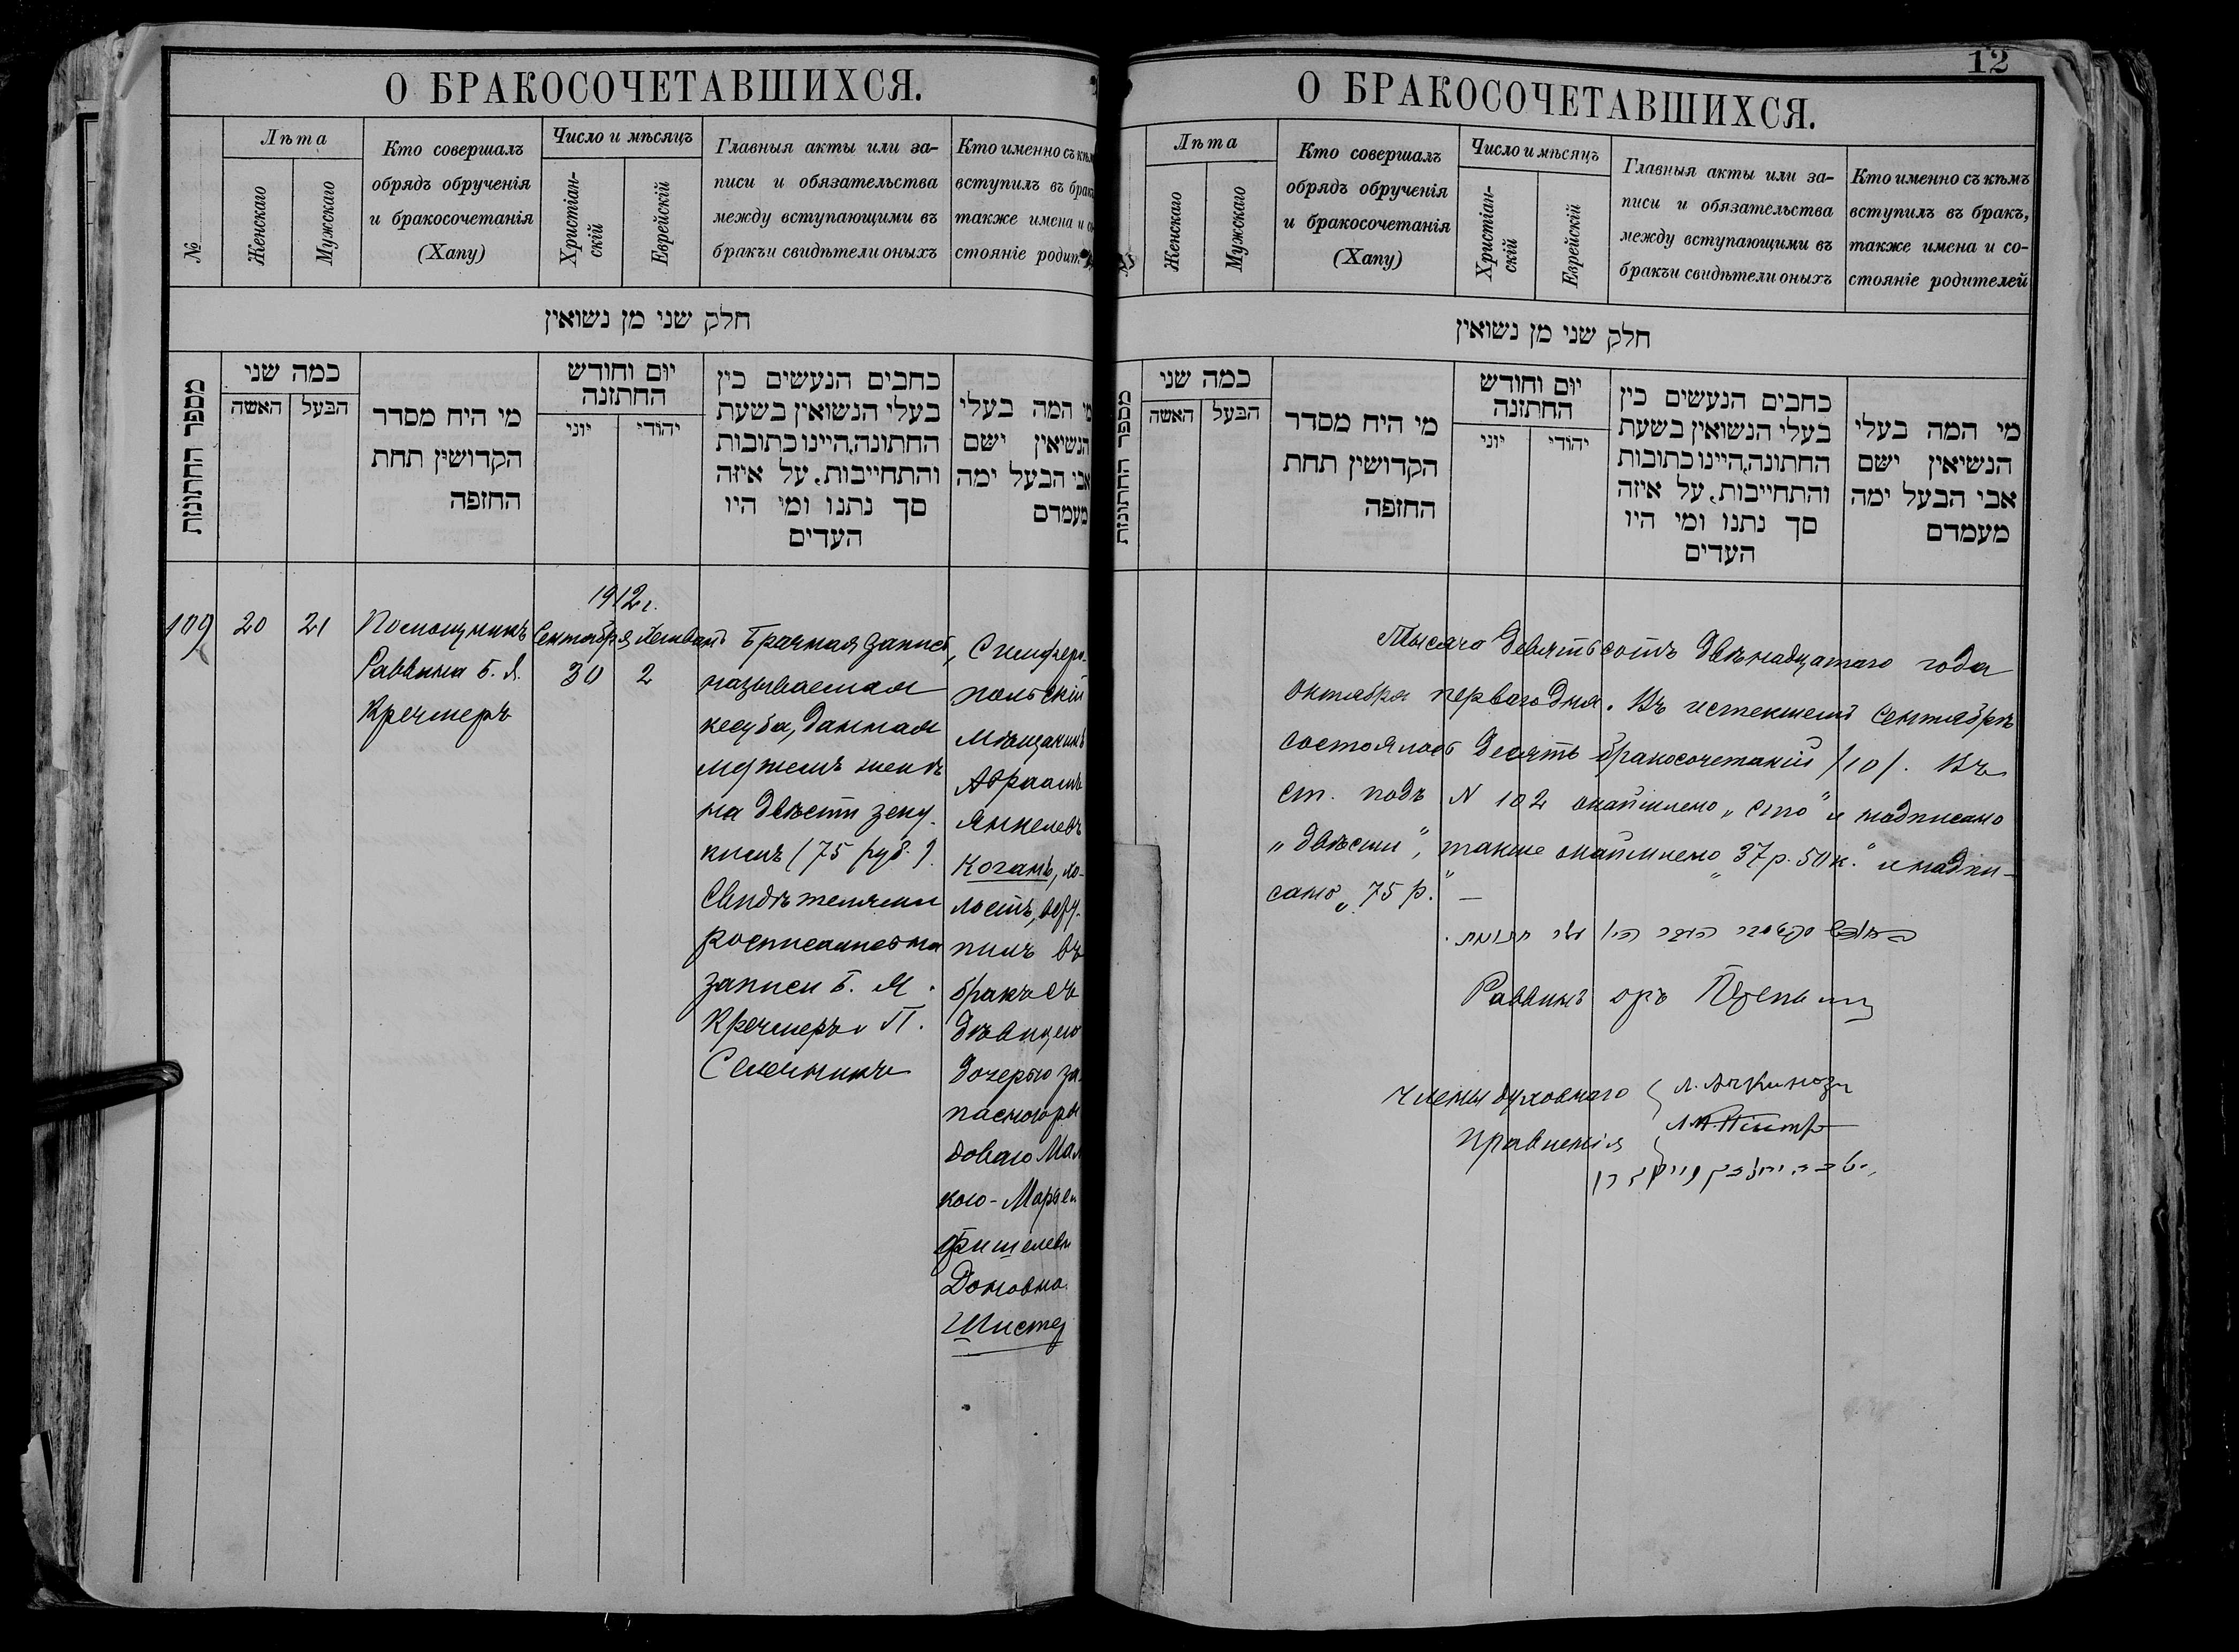 О БРАКОСОЧЕТАВШИХСЯ.
№
Лѣта
Женскаго
Мужскаго
Кто совершалъ
обрядъ обрученія
и бракосочетанія
(Хапу)
Число и мѣсяцъ
Христіан-
скій
Еврейскій
Главныя акты или за-
писи и обязательства
между вступающими въ
бракъи свидѣтели оныхъ
Кто именно съ кѣмъ
вступилъ въ бракъ
также имена и со
стояніе родит
חלק שני מן נשואין
מספר החתונות
כמה שני
האשה
הבעל
מי היח מסדר
הקדושין תחת
החופה
יום וחודש
החתונה
יוני
יהודי
כחבים הנעשים כין
בעלי הנשואין בשעת
החתונה,היינו כתובות
והתחייבות, על איזה
סך נתנו ומי היו
העדים
מי המה בעלי
הנשיאין ישם
אבי הבעל ימה
מעמדם
109
20
21
Помощникъ
Раввина Б. Я.
Кречмеръ
1912 г.
Сентября
30
Хешвонъ
2
Брачная запись,
называемая
кесуба, данная
мужемъ женѣ
на двѣсти зеку-
кимъ (75 руб.).
Свидѣтелями
росписались на
записи Б. Я.
Кречмеръ и П.
Симферо-
польскій
мѣщанинъ
Абрамъ
Янкелевъ
Коганъ, хо-
лостъ, всту-
пилъ въ
бракъ съ
дѣвицею
дочерью за-
паснаго ря
доваго Мал
кою-Марьею
Фишелевн
Доновна
Шистер
12
О БРАКОСОЧЕТАВШИХСЯ.
Лѣта
Женскаго
Мужскаго
Кто совершалъ
обрядъ обрученія
и бракосочетанія
(Хапу)
Число и мѣсяцъ
Христіан-
скій
Еврейскій
Главныя акты или за-
писи и обязательства
между вступающими въ
бракъи свидѣтели оныхъ
Кто именно съ кѣмъ
вступилъ въ бракъ,
также имена и со-
стояніе родителей
חלק שני מן נשואין
מספר החתונות
כמה שני
האשה
הבעל
מי היח מסדר
הקדושין תחת
החופה
יום וחודש
החתונה
יוני
יהודי
כחבים הנעשים כין
בעלי הנשואין בשעת
החתונה,היינו כתובות
והתחייבות, על איזה
סך נתנו ומי היו
העדים
מי המה בעלי
הנשיאין ישם
אבי הבעל ימה
מעמדם
Тысяча девятьсотъ двѣнадцатаго года
октября перваго дня. Въ истекшемъ Сентябрѣ
состоялось десять бракосочетаній /10/. Въ
ст. подъ № 102 окаймлено „сто" и надписано
„двѣсти", также окаймлено „37 р. 50 к." и надпи-
сано „75 р." —
Раввинъ
Члены духовнаго
правленія